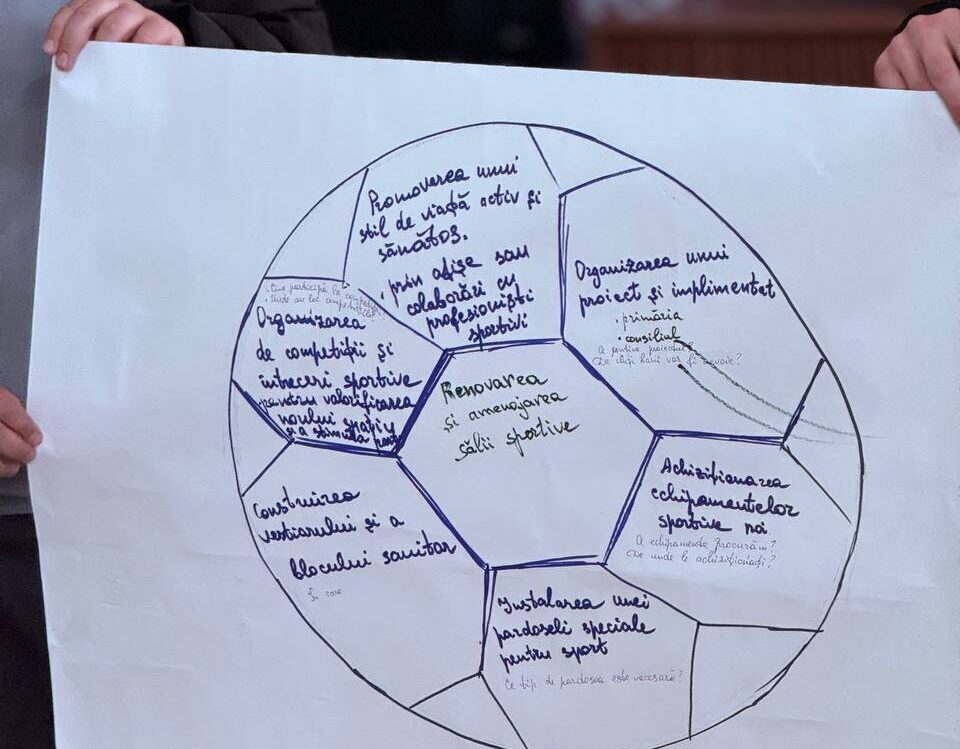 Promovarea unui
stil de viață activ și
sănătos.
• prin afișe sau
colaborări cu
profesioniști
sportivi
Organizarea unui
proiect și implimentat
• primăria
• consiliul
De câți bani var fi nevoie?
• Cine participă la
• Unde au loc competițiile?
Organizarea
de competiții și
întreceri sportive
pentru valorificarea
noului spațiu
și a stimula
Renovarea
și amenajarea
sălii sportive
Achiziționarea
echipamentelor
sportive noi
Ce echipamente procurăm?
De unde le achiziționați?
Construirea
vestiarului și a
blocului sanitar
În care
Instalarea unei
pardoseli speciale
pentru sport
Ce tip de pardosea este necesară?